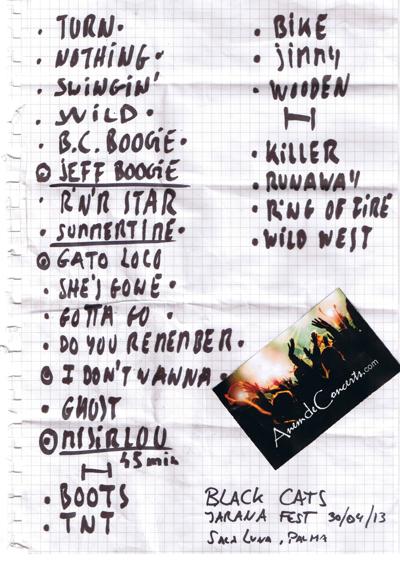 TURN
NOTHING
SWINGIN'
WILD
B.C. BOOGIE
JEFF BOOGIE
R'N'R STAR
SUMMERTIME
GATO LOCO
SHE'S GONE
GOTTA GO
DO YOU REMEMBER
I DON'T WANNA
GHOST
MISIRLOU
45 min
BOOTS
TNT
BIKE
JIMMY
WOODEN
KILLER
RUNAWAY
RING OF FIRE
WILD WEST
AnemdeConcerts.com
BLACK CATS
JARANA FEST 30/04/13
SALA LUNA, PALMA